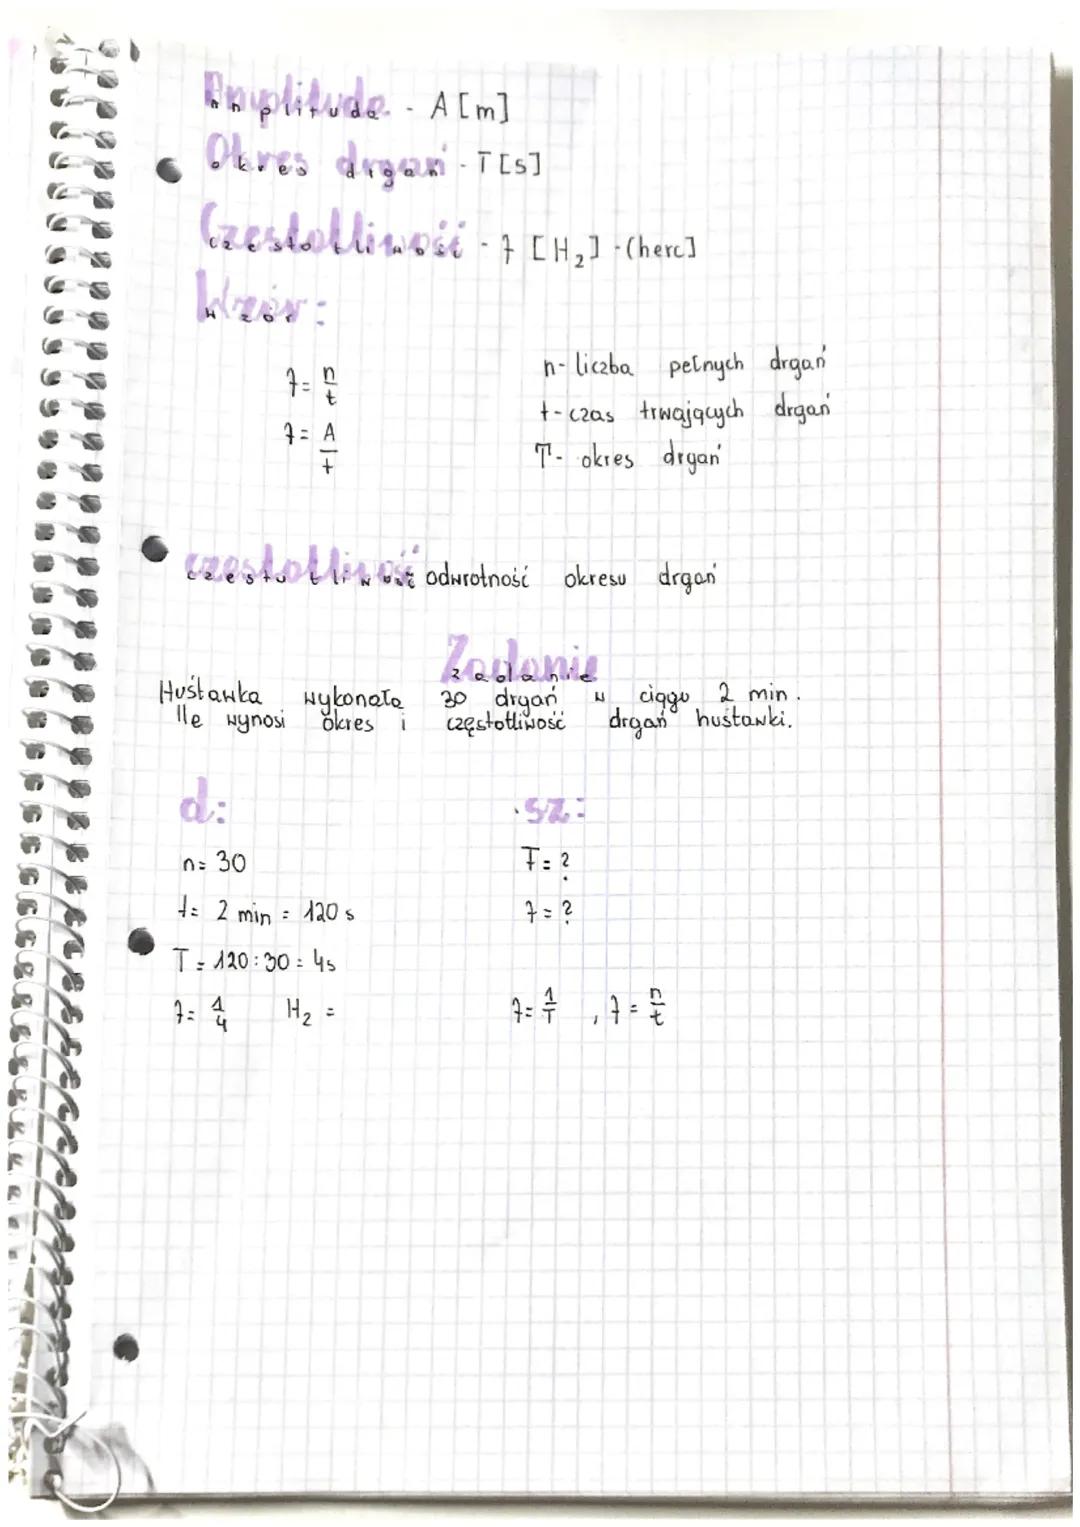 Amplituda - A [m]
Okres drgań - T [s]
Częstotliwość - f [H₂] - (herc]
Wzór:
f = n/t
n - liczba pełnych drgań
f = A/t
t - czas trwających drgań
T - okres drgań
częstotliwość odwrotność okresu drgań
Zadanie
Huśtawka wykonała 30 drgań w ciągu 2 min.
Ile wynosi okres i częstotliwość drgań huśtawki.
d:
sz:
n = 30
T = ?
t = 2 min = 120 s
f = ?
T = 120 : 30 = 4s
f = 1/4 H₂ =
f = 1/T , f = n/t